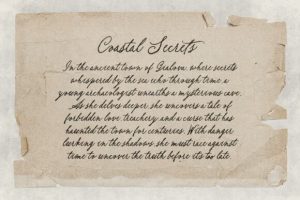 Coastal Secrets
In the ancient town of Gialova, where secrets
whispered by the sea echo through time, a
young archaeologist unearths a mysterious cave.
As she delves deeper, she uncovers a tale of
forbidden love, treachery, and a curse that has
haunted the town for centuries. With danger
lurking in the shadows, she must race against
time to uncover the truth before its too late.